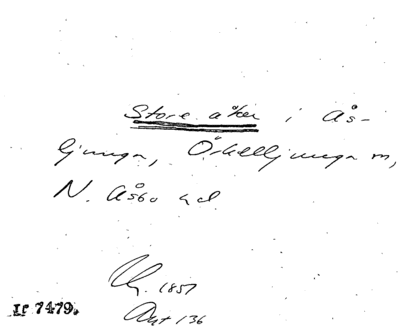 Store åker i Ås-
ljunga, Örkelljunga sn,
N. Åsbo hd
1857
Akt 136
If 7479.